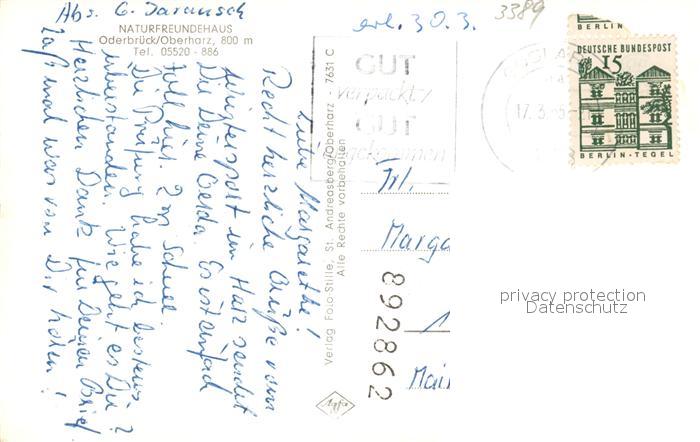 Abs. G. Jarausch
NATURFREUNDEHAUS
Oderbrück/Oberharz, 800 m
Tel. 05520 - 886
erl. 30.3.
3389
Liebe Margarethe!
Recht herzliche Grüße vom
Wintersport im Harz sendet
Dir Deine Gerda. Es ist einfach
toll hier. 2 m Schnee.
Die Prüfung habe ich bestens
überstanden. Wie geht es Dir?
Herzlichen Dank für Deinen Brief
Laß mal was von Dir hören!
Verlag Foto-Stille, St. Andreasberg/Oberharz 7631 C
Alle Rechte vorbehalten
Agfa
GUT
verpackt
GUT
angekommen
GOSLAR
17.3.
BERLIN
DEUTSCHE BUNDESPOST
15
BERLIN-TEGEL
Frl.
Marga
Mai
892862
privacy protection
Datenschutz